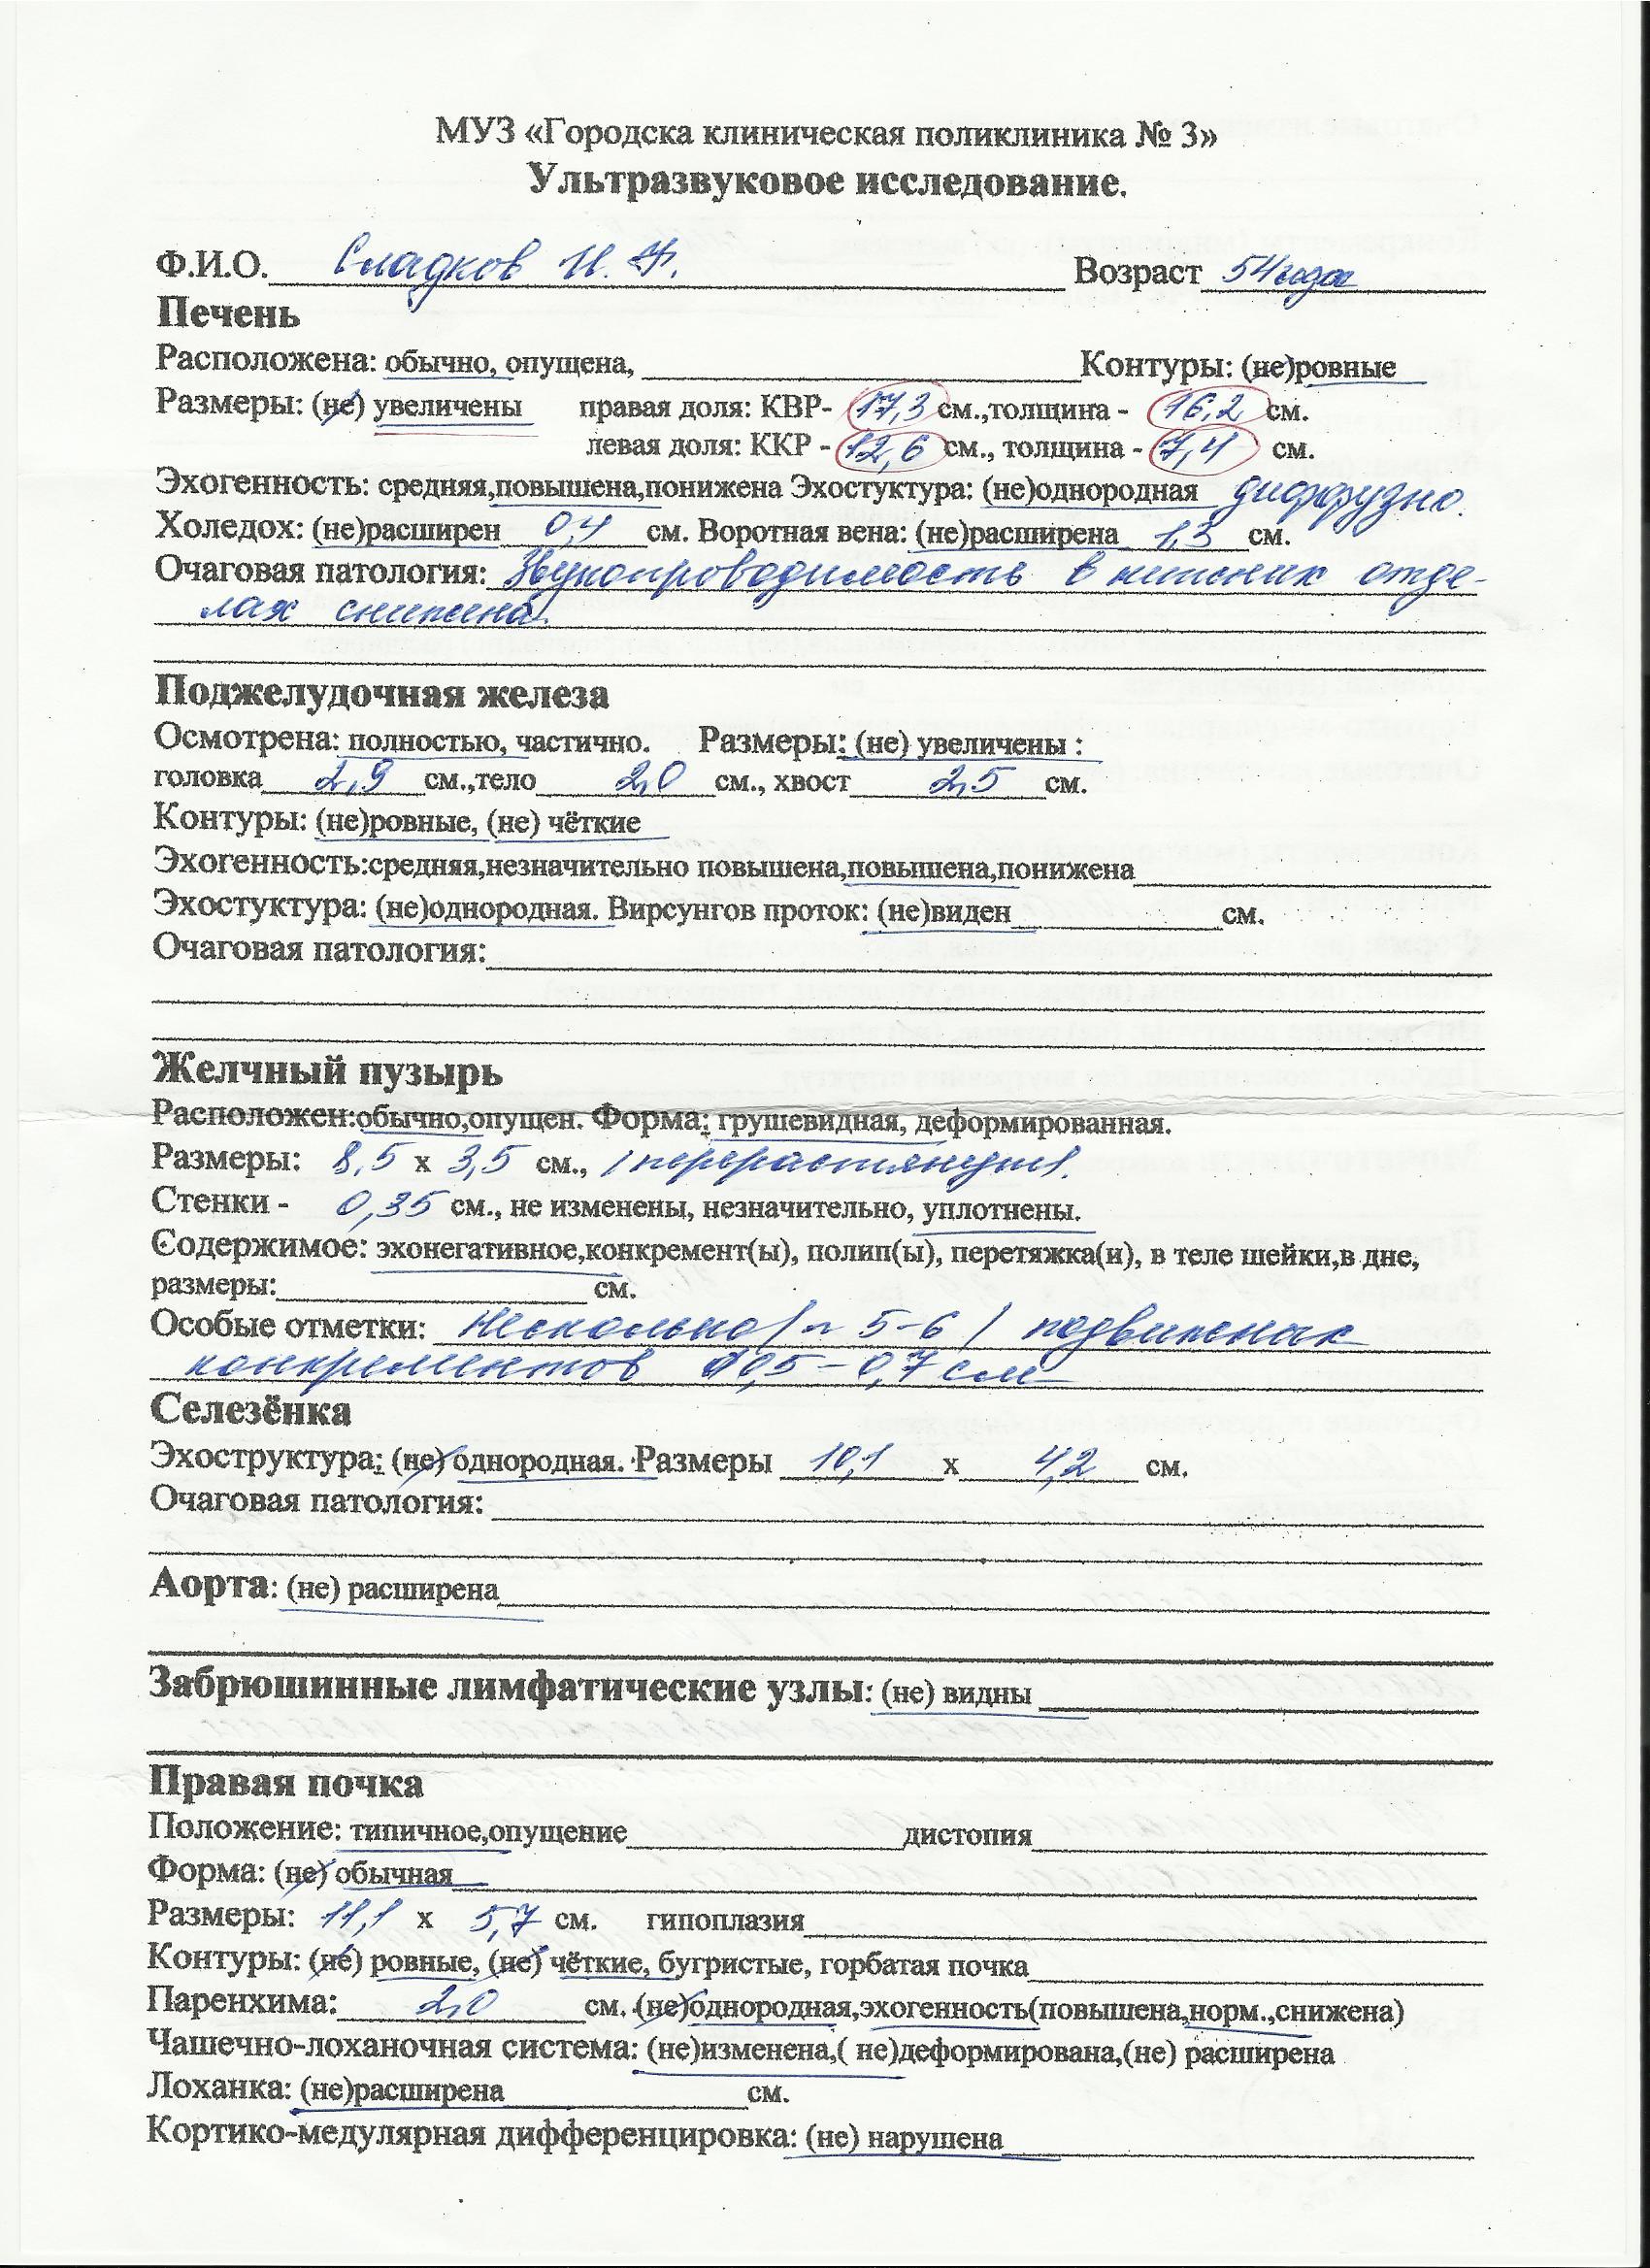 МУЗ «Городска клиническая поликлиника № 3»
Ультразвуковое исследование.
Ф.И.О. Сладков Н. Ф. Возраст 54 года
Печень
Расположена: обычно, опущена, Контуры: (не)ровные
Размеры: (не) увеличены правая доля: КВР- 17,3 см.,толщина - 16,2 см.
левая доля: ККР - 12,6 см., толщина - 7,4 см.
Эхогенность: средняя,повышена,понижена Эхостуктура: (не)однородная диффузно.
Холедох: (не)расширен 0,4 см. Воротная вена: (не)расширена 1,3 см.
Очаговая патология: Звукопроводимость в нижних отде-
лах снижена.
Поджелудочная железа
Осмотрена: полностью, частично. Размеры: (не) увеличены :
головка 2,9 см.,тело 2,0 см., хвост 2,5 см.
Контуры: (не)ровные, (не) чёткие
Эхогенность:средняя,незначительно повышена,повышена,понижена
Эхостуктура: (не)однородная. Вирсунгов проток: (не)виден см.
Очаговая патология:
Желчный пузырь
Расположен:обычно,опущен. Форма: грушевидная, деформированная.
Размеры: 8,5 х 3,5 см., /перерастянут/.
Стенки - 0,35 см., не изменены, незначительно, уплотнены.
Содержимое: эхонегативное,конкремент(ы), полип(ы), перетяжка(и), в теле шейки,в дне,
размеры: см.
Особые отметки: Несколько /~ 5-6 / подвижных
конкрементов d 0,5 – 0,7 см
Селезёнка
Эхоструктура: (не) однородная. Размеры 10,1 х 4,2 см.
Очаговая патология:
Аорта: (не) расширена
Забрюшинные лимфатические узлы: (не) видны
Правая почка
Положение: типичное,опущение дистопия
Форма: (не) обычная
Размеры: 11,1 х 5,7 см. гипоплазия
Контуры: (не) ровные, (не) чёткие, бугристые, горбатая почка
Паренхима: 2,0 см. (не)однородная,эхогенность(повышена,норм.,снижена)
Чашечно-лоханочная система: (не)изменена,( не)деформирована,(не) расширена
Лоханка: (не)расширена см.
Кортико-медулярная дифференцировка: (не) нарушена